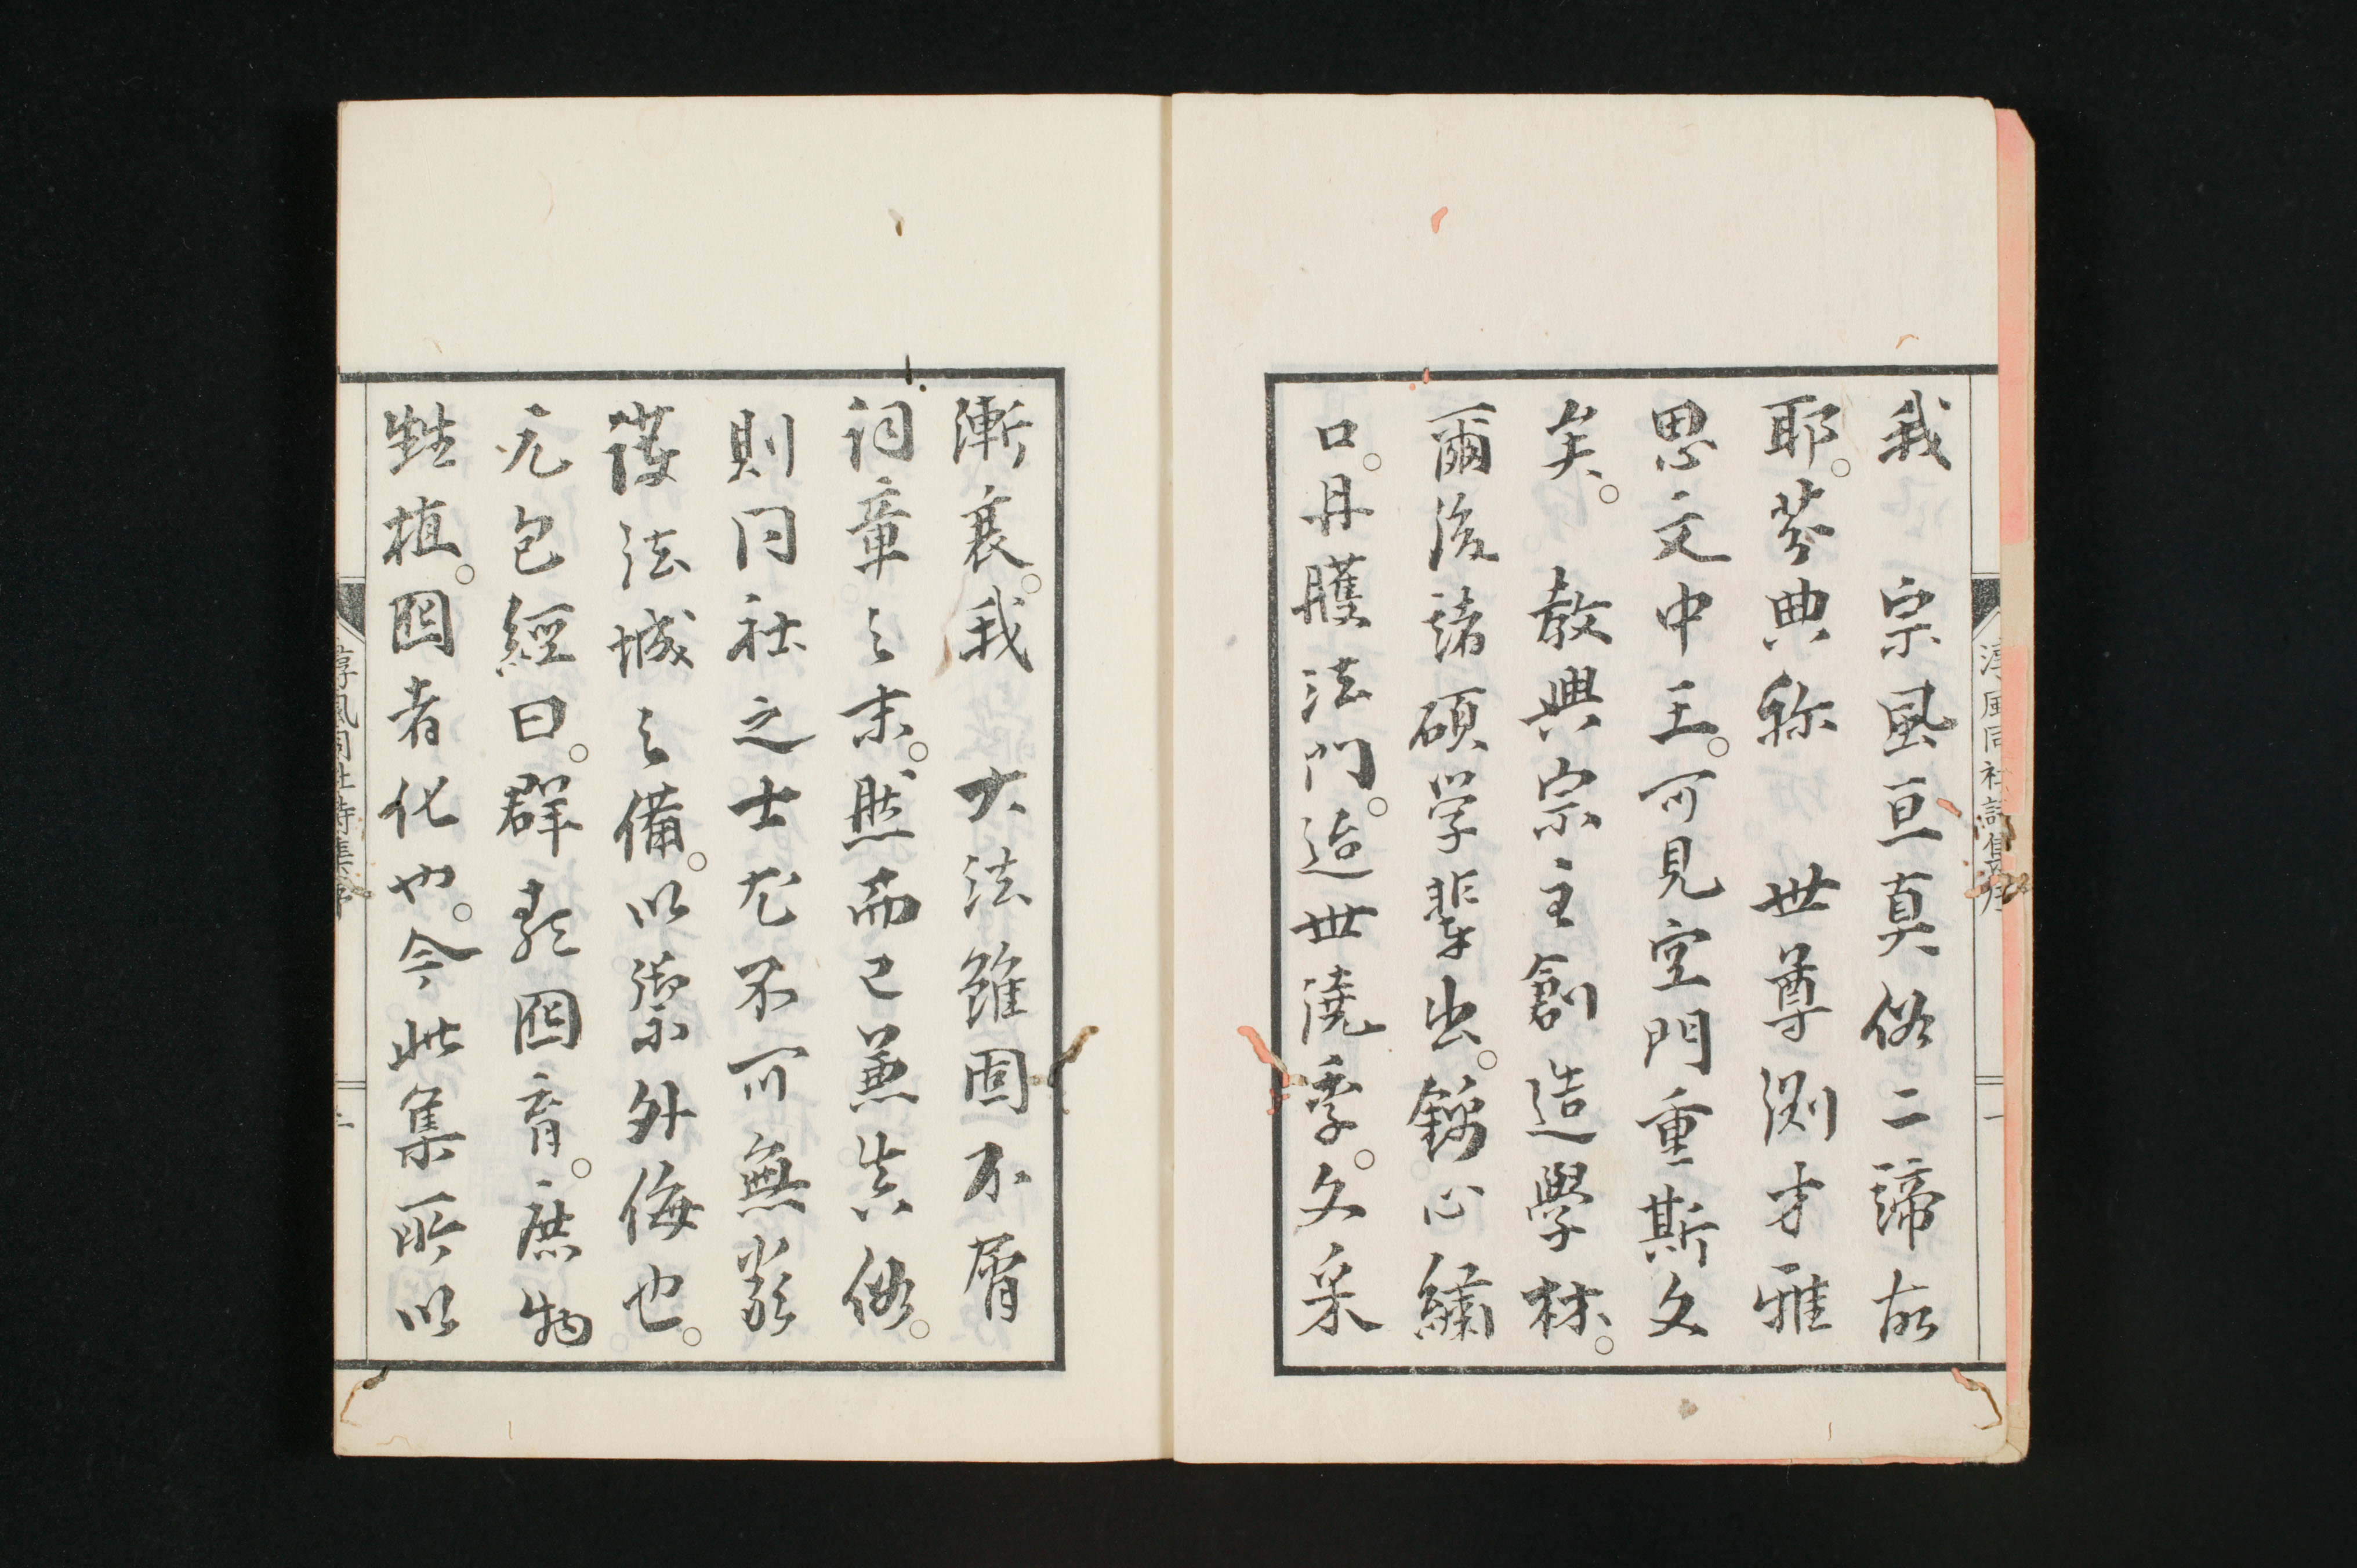 我 宗風亘真俗二諦故
耶。芬典称 世尊測才雅
思文中王。可見空門重斯文
矣。 教興宗主創造學林。
爾後諸碩学輩出。錦心繍
口。丹雘法門。迨世澆季。文采
漸衰。我 大法雖固不屑
詞章之末。然而已兼真俗。
則同社之士尤不可無装
護法城之備。以禦外侮也。
元包經曰。群類囮育。庶物
甡植。囮者化也。今此集所以
淳風同社詩集序
一
淳風同社詩集序
二